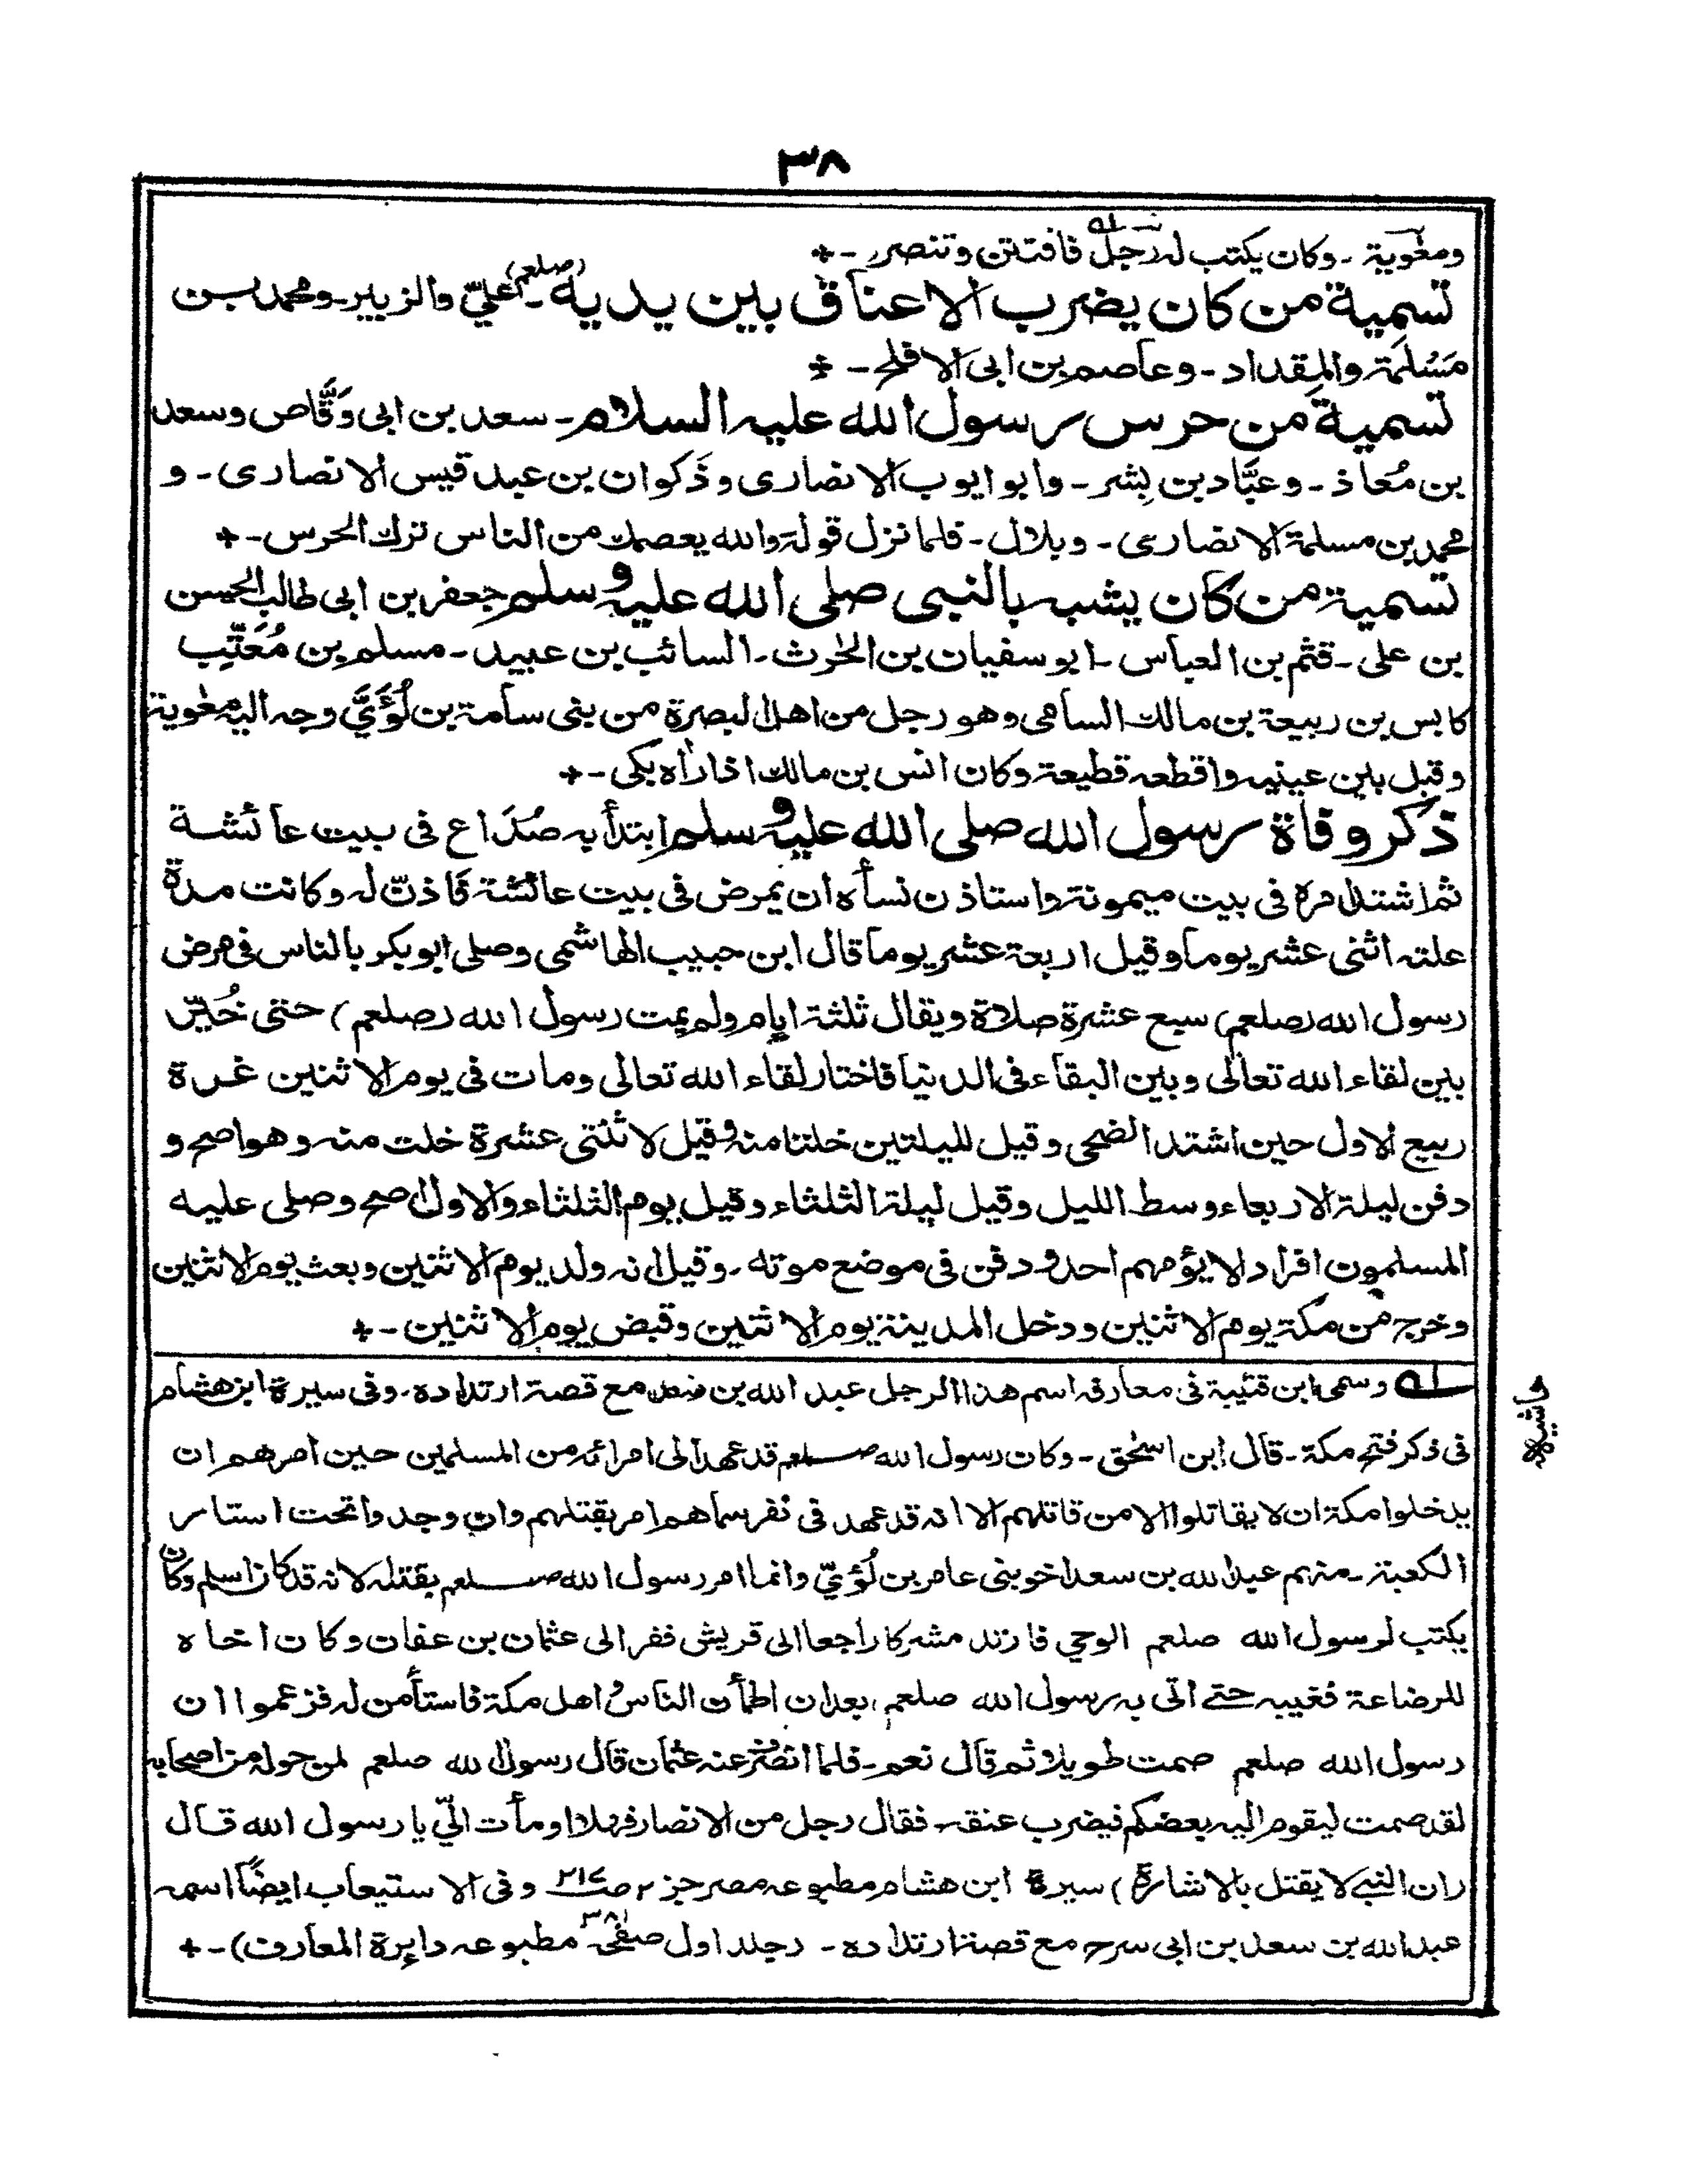 ٣٨
ومغوية ـ وكان يكتب له رجل فافتتن وتنصر ـ
تسمية من كان يضرب الاعناق بين يديه (صلعم) ـ عليّ والزبير ـ ومحمد بن
مَسْلَمة والمِقداد ـ وعاصم بن ابى الافلح ـ
تسمية من حرس رسول الله عليه السلام ـ سعد بن ابى وَقَّاص وسعد
بن مُعاذ ـ وعبَّاد بن بِشر ـ وابو ايوب الانصارى وذَكوان بن عبد قيس الانصارى ـ و
محمد بن مسلمة الانصارى ـ وبلال ـ فلما نزل قوله والله يعصمك من الناس ترك الحرس ـ
تسمية من كان يشبه بالنبى صلى الله عليه وسلم جعفر بن ابى طالب الحسن
بن على ـ قثم بن العباس ـ ابو سفيان بن الحٰرث ـ السائب بن عبيد ـ مسلم بن مُعَتِّب
كابس بن ربيعة بن مالك السامى وهو رجل من اهل البصرة من بنى سامة بن لُؤَيَّ وجه اليه معٰوية
وقبل بين عينيه واقطعه قطيعة وكان انس بن مالك اذا راٰه بكى ـ
ذكر وفاة رسول الله صلى الله عليه وسلم ابتدأ به صُدَاع فى بيت عائشة
ثم اشتد امره فى بيت ميمونة واستاذن نسأه ان يمرض فى بيت عائشة فَاذنّ له وكانت مدة
علته اثنى عشر يوما وقيل اربعة عشر يوما قال ابن حبيب الهاشمى وصلى ابو بكر بالناس فى مرض
رسول الله (صلعم) سبع عشرة صلاة ويقال ثلثة ايام ولم يمت رسول الله (صلعم) حتى خُيّر
بين لقاء الله تعالى وبين البقاء فى الدنيا فاختار لقاء الله تعالى ومات فى يوم الاثنين غرة
ربيع الاول حين اشتد الضحى وقيل لليلتين خلتا منه وقيل لاثنتى عشرة خلت منه وهو اصح و
دفن ليلة الاربعاء وسط الليل وقيل ليلة الثلثاء وقيل يوم الثلثاء والاول اصح وصلى عليه
المسلمون افرادا لا يؤمهم احد و دفن فى موضع موته ـ وقيل انه ولد يوم الاثنين وبعث يوم الاثنين
وخرج من مكة يوم الاثنين ودخل المدينة يوم الاثنين وقبض يوم الاثنين ـ
حاشيه
له وسمى ابن قتيبة فى معارفه اسم هذا الرجل عبد الله بن مع قصة ارتداده ـ وفى سيرة ابن هشام
فى ذكر فتح مكة ـ قال ابن اسحٰق ـ وكان رسول الله صلعم قد عهد الى امرائه من المسلمين حين امرهم ان
يدخلوا مكة ان لا يقاتلوا الا من قاتلهم الا انه قد عهد فى نفر سماهم امر بقتلهم وان وجدوا تحت استار
الكعبة ـ منهم عبد الله بن سعد اخو بنى عامر بن لُؤيّ وانما امر رسول الله صلعم بقتله لانه قد كان اسلم وكان
يكتب لرسول الله صلعم الوحي فارتد مشركا راجعا الى قريش ففر الى عثمان بن عفان وكان اخاه
للرضاعة فغيبه حتے اتى به رسول الله صلعم بعد ان اطمأن الناسُ اهل مكة فاستأمن له فزعموا ان
رسول الله صلعم صمت طويلا ثم قال نعم ـ فلما انصرف عنه عثمان قال رسول الله صلعم لمن حوله من اصحابه
لقد صمت ليقوم اليه بعضكم فيضرب عنقه ـ فقال رجل من الانصار فهلا اومأت اليّ يا رسول الله قال
(ان النبے لا يقتل بالاشارة) سيرة ابن هشام مطبوعه مصر جز ٢ صـ ٢١٧ وفى الاستيعاب ايضًا اسمه
عبد الله بن سعد بن ابى سرح مع قصة ارتداده ـ (جلد اول صفحه ٣٨١ مطبوعه دايرة المعارف) ـ